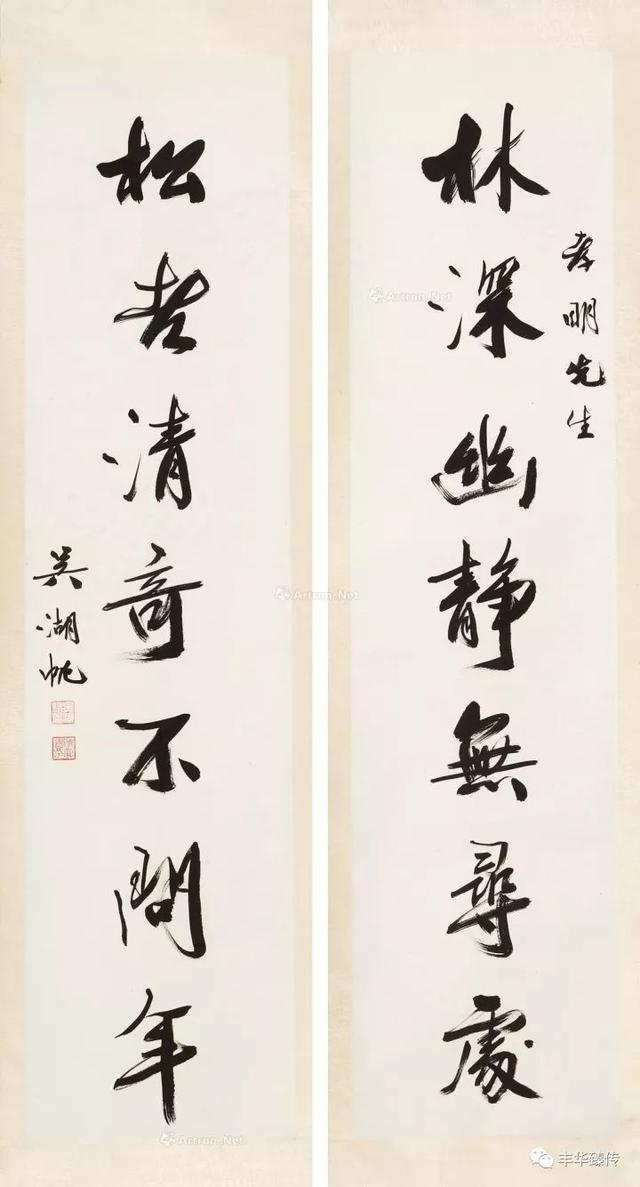 孝明先生
林深幽静無尋處
松老清奇不問年
吴湖帆
Artron.Net
Artron.Net
Artron.Net
Artron.Net
丰华臻传